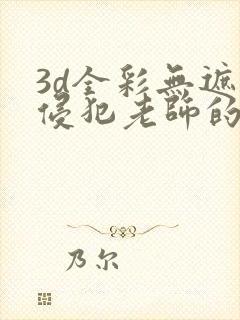 3d全彩無遮
侵犯老師的
乃尔